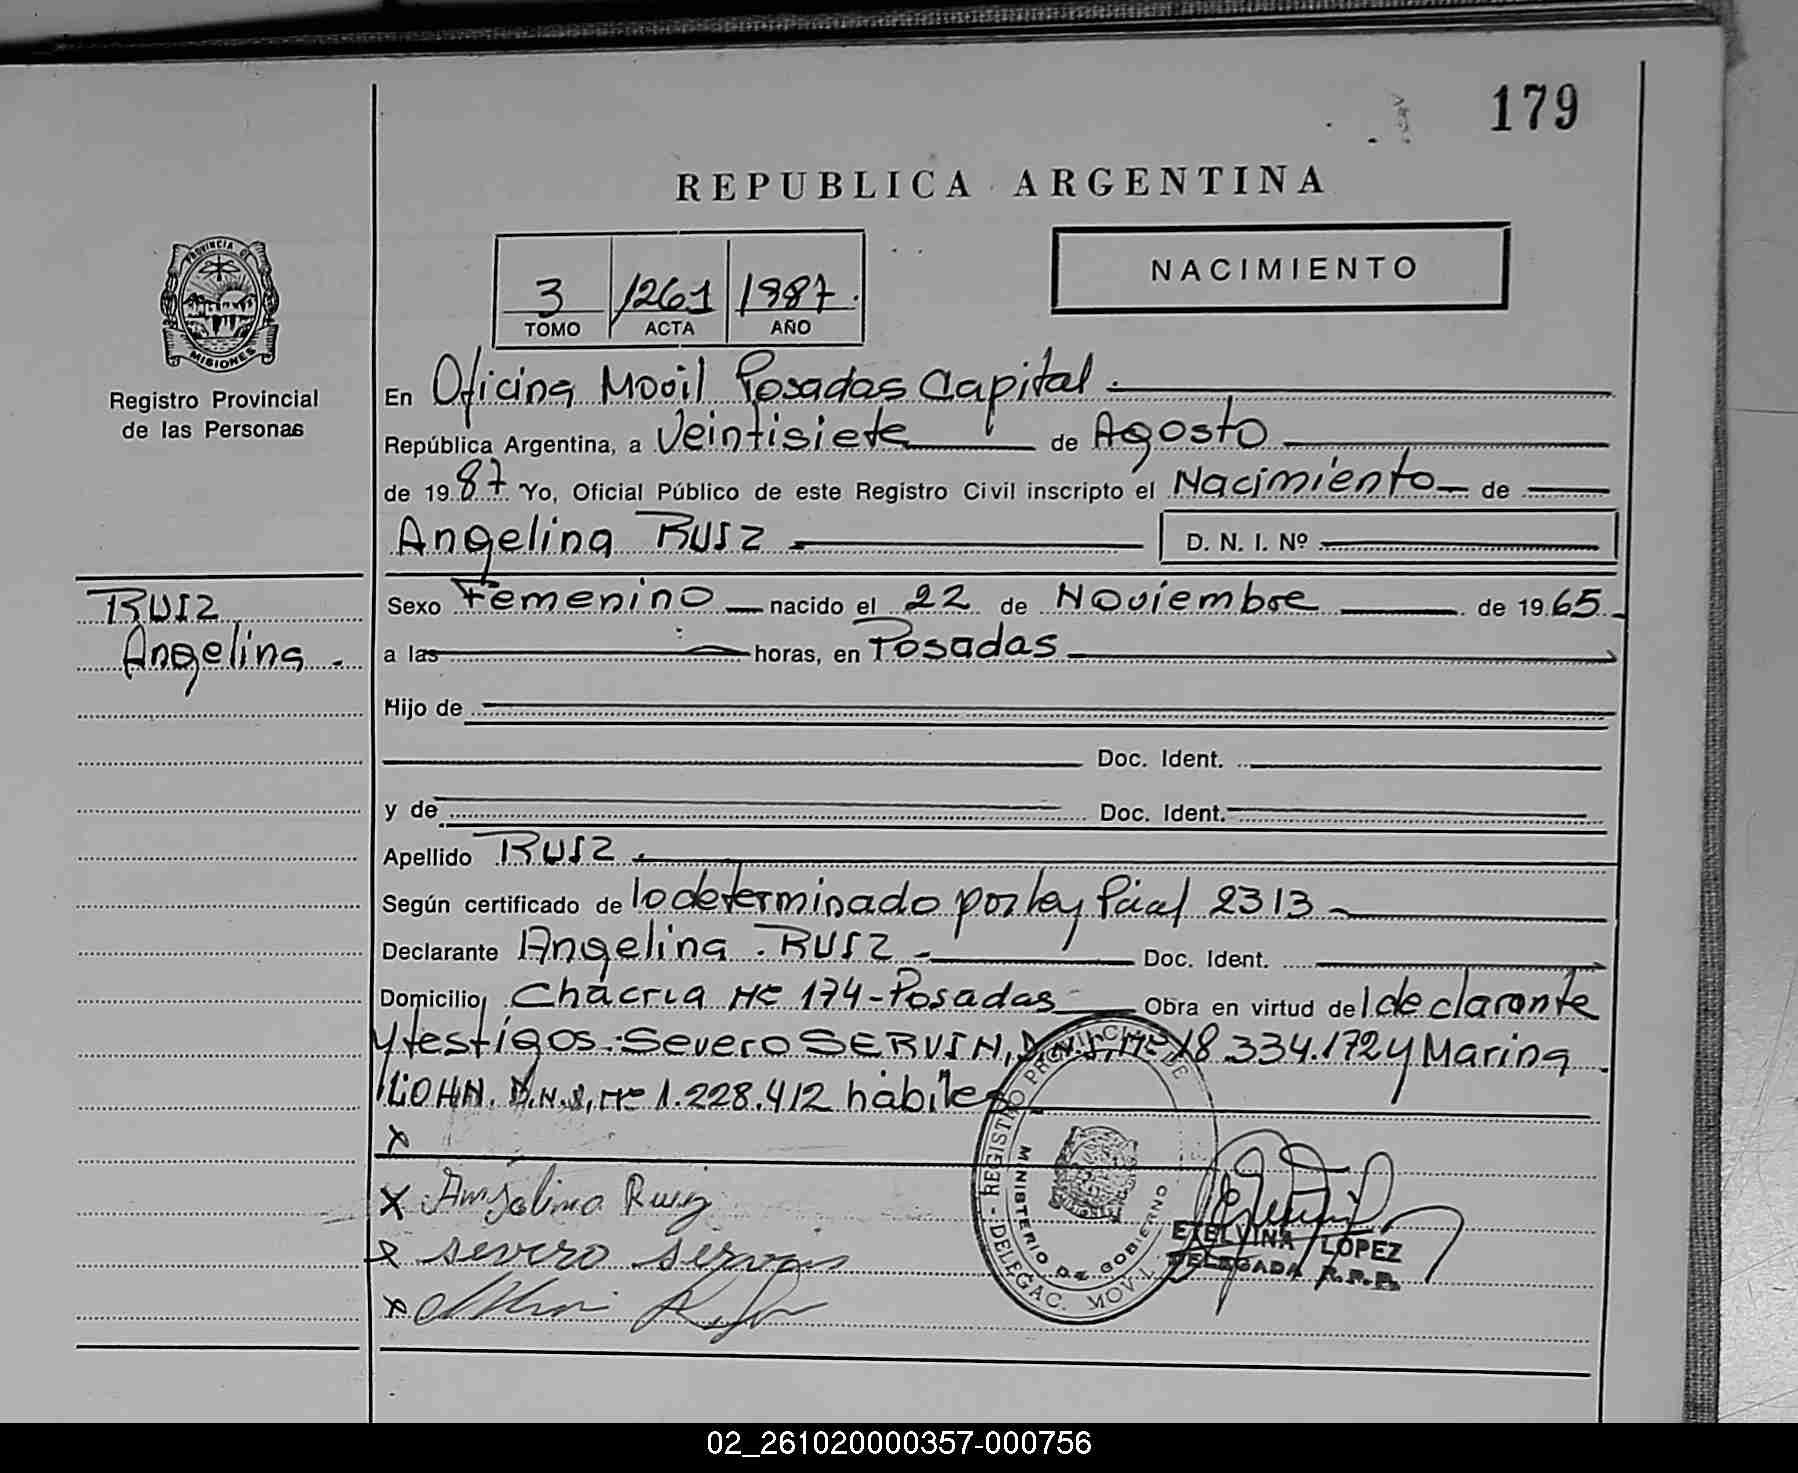 179
REPUBLICA ARGENTINA
PROVINCIA DE
MISIONES
Registro Provincial
de las Personas
3 1261 1987.
TOMO ACTA AÑO
NACIMIENTO
En Oficina Movil Posadas Capital.
República Argentina, a Veintisiete de Agosto
de 1987 Yo, Oficial Público de este Registro Civil inscripto el Nacimiento de
Angelina RUIZ D. N. I. Nº
RUIZ
Angelina.
Sexo Femenino nacido el 22 de Noviembre de 1965
a las horas, en Posadas
Hijo de
Doc. Ident.
y de Doc. Ident.
Apellido RUIZ.
Según certificado de lo determinado por ley Pcial 2313
Declarante Angelina RUIZ Doc. Ident.
Domicilio Chacria Nº 174-Posadas Obra en virtud del declarante
y testigos: Severo SERVIN, D.N.I, Nº 18.334.172 y Marina
D.N.I, Nº 1.228.412 hábiles
x
x Angelina Ruiz
x severo
x
REGISTRO PROVINCIAL DE
DELEGAC. MOVIL
MINISTERIO DE GOBIERNO
ETELVINA LOPEZ
DELEGADA R.P.P.
02_261020000357-000756